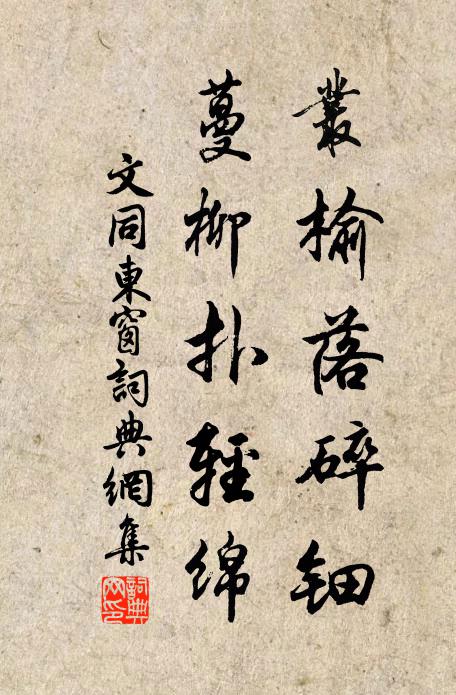 叢榆落碎鈿
蔓柳扑輕綿
文同東窗詞典網集
詞典
文印